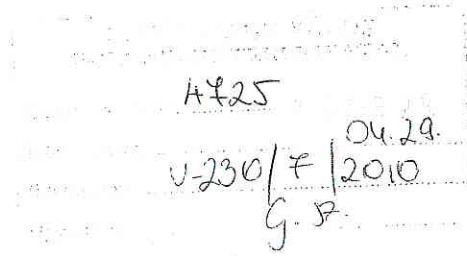 A725
04.29.
V-230/7/2010